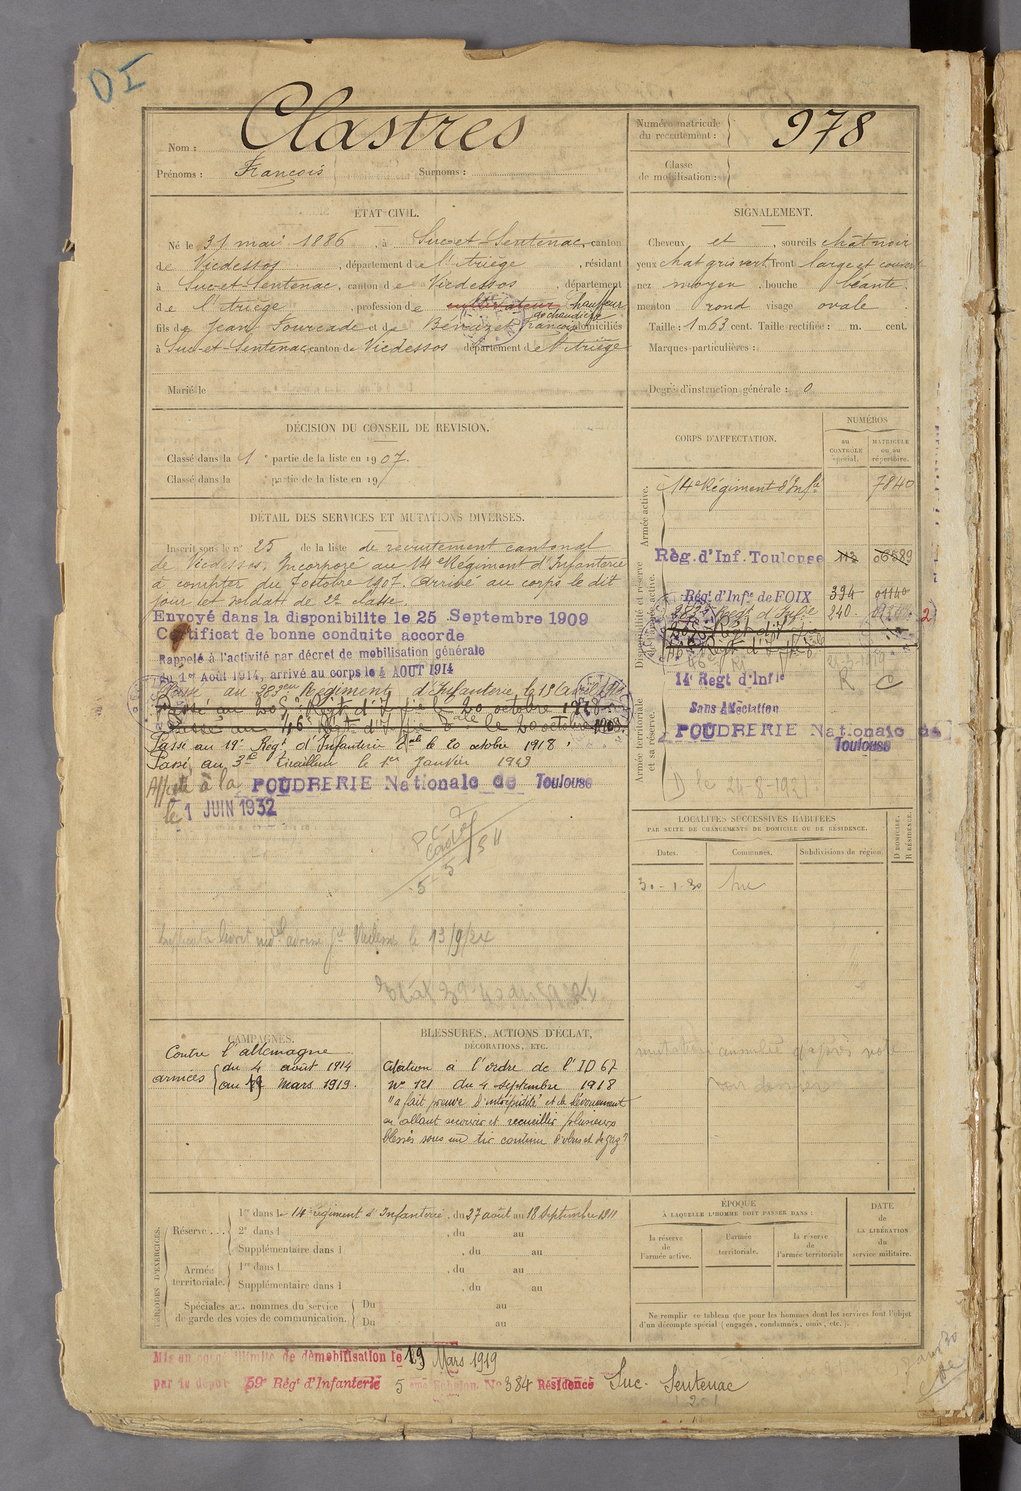 DI
Nom : Clastres
Prénoms : François Surnoms :
Numéro matricule du recrutement : 978
Classe de mobilisation :
ÉTAT CIVIL.
Né le 31 mai 1886, à Suc-et-Sentenac, canton
de Vicdessos, département de l'Ariège, résidant
à Suc-et-Sentenac, canton de Vicdessos, département
de l'Ariège, profession de cultivateur chauffeur
de chaudière
fils de Jean Fourcade et de François domiciliés
à Suc-et-Sentenac, canton de Vicdessos département de l'Ariège
Marié le
SIGNALEMENT.
Cheveux et, sourcils chât noir
yeux chat gris vert, front large et
nez moyen, bouche béante,
menton rond visage ovale
Taille : 1 m 63 cent. Taille rectifiée : m. cent.
Marques particulières :
Degré d'instruction générale : 0
DÉCISION DU CONSEIL DE REVISION.
Classé dans la 1e partie de la liste en 1907.
Classé dans la e partie de la liste en 19
DÉTAIL DES SERVICES ET MUTATIONS DIVERSES.
Inscrit sous le n° 25 de la liste de recrutement cantonal
de Vicdessos; Incorporé au 14e Régiment d'Infanterie
à compter du 7 octobre 1907. Arrivé au corps le dit
jour et soldat de 2e classe.
Envoyé dans la disponibilite le 25 Septembre 1909
Certificat de bonne conduite accorde
Rappelé à l'activité par décret de mobilisation générale
du 1er Août 1914, arrivé au corps le 4 AOUT 1914
Passé au 283eme Régiment d'Infanterie, le 1er avril
Passé au Régt d'Inf le 20 octobre 1918
Passé au Régt d'Inf le 20 octobre
Passé au 19e Régt d'Infanterie le 20 octobre 1918.
Passé au 3e tirailleur le 1er janvier 1919
Affecté à la POUDRERIE Nationale de Toulouse
le 1 JUIN 1932
le 13/9/24
CORPS D'AFFECTATION.
NUMÉROS
AU CONTRÔLE spécial.
MATRICULE OU AU répertoire.
Armée active.
14e Régiment d'Infie 7840
Disponibilité et réserve de l'armée active.
Règ. d'Inf. Toulouse
Régt d'Infie de FOIX 394
283e Régt d'Infie 240
Armée territoriale et sa réserve.
14e Regt d'Infie R C
Sans Affectation
POUDRERIE Nationale de
Toulouse
D le 24-8-1921
LOCALITÉS SUCCESSIVES HABITÉES
PAR SUITE DE CHANGEMENTS DE DOMICILE OU DE RÉSIDENCE.
Dates. Communes. Subdivisions de région. D DOMICILE. R RÉSIDENCE.
30-1-30 Suc
mutation annulée d'après note
CAMPAGNES.
Contre l'allemagne
armées du 4 août 1914
au 19 Mars 1919.
BLESSURES, ACTIONS D'ÉCLAT,
DÉCORATIONS, ETC.
Citation à l'ordre de l'ID 67
n° 121 du 4 septembre 1918
"a fait preuve d'intrépidité et de dévouement
en allant secourir et recueillir plusieurs
blessés sous un tir continu d'obus et de gaz"
PÉRIODES D'EXERCICES.
Réserve...
1re dans le 14e régiment d'Infanterie, du 27 août au 18 Septembre 1911
2e dans l , du au
Supplémentaire dans l , du au
Armée territoriale.
1re dans l , du au
Supplémentaire dans l , du au
Spéciales aux hommes du service de garde des voies de communication.
Du au
Du au
ÉPOQUE
À LAQUELLE L'HOMME DOIT PASSER DANS :
la réserve de l'armée active.
l'armée territoriale.
la réserve de l'armée territoriale
DATE DE LA LIBÉRATION du service militaire.
Ne remplir ce tableau que pour les hommes dont les services font l'objet
d'un décompte spécial (engagés, condamnés, omis, etc.).
Mis en congé illimité de démobilisation le 19 Mars 1919
par le dépôt 59e Régt d'Infanterie 5eme Echelon. No 384 Résidence Suc-Sentenac